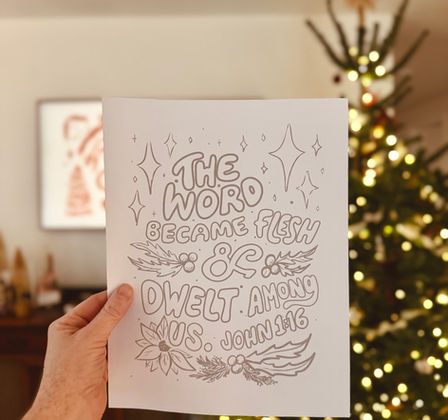 THE
WORD
BECAME FLESH
&
DWELT AMONG
US. JOHN 1:16